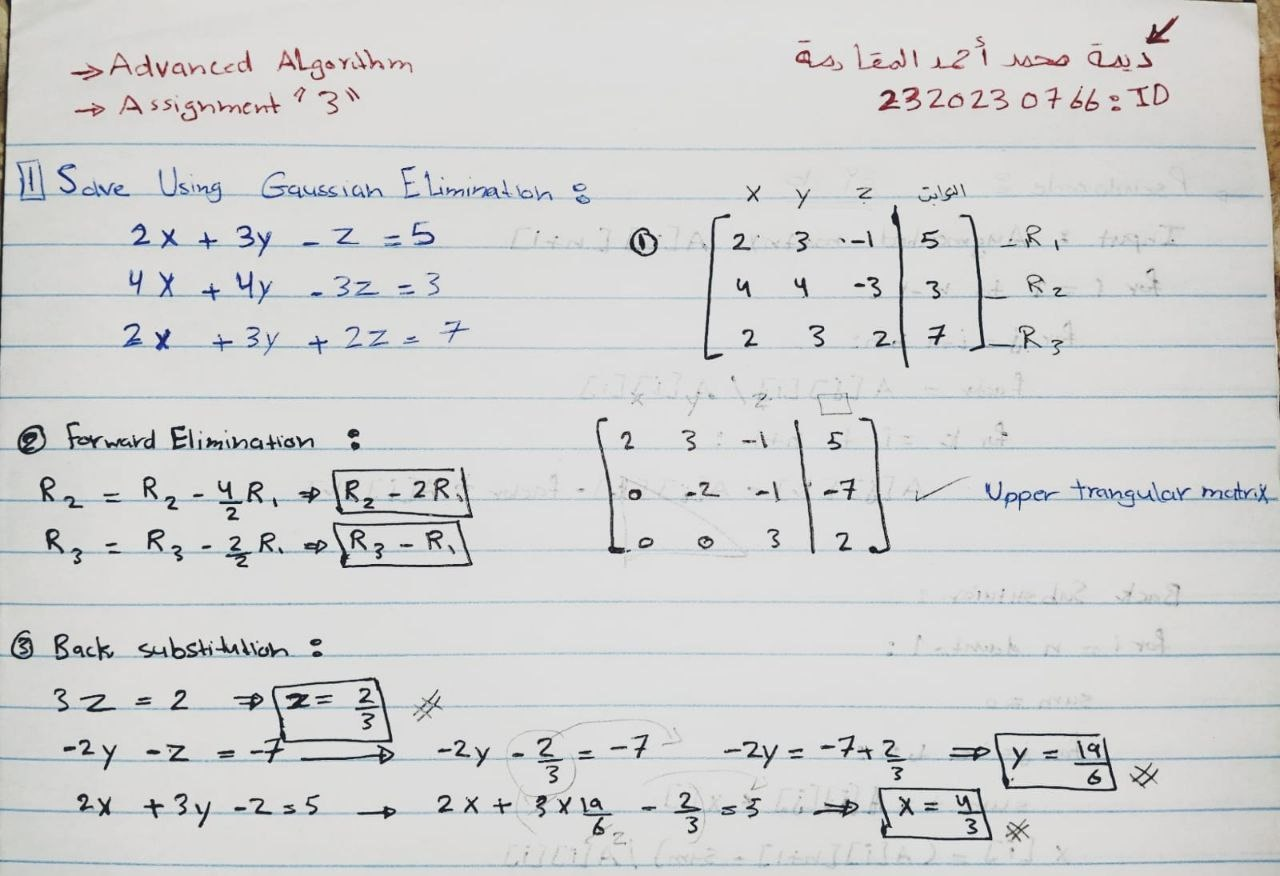 → Advanced Algorithm
ديمة محمد أحمد المقادمة
→ Assignment "3"
2320230766 : ID
1 Solve Using Gaussian Elimination :
2x + 3y - z = 5
4x + 4y - 3z = 3
2x + 3y + 2z = 7
x y z الثوابت
① [ 2 3 -1 | 5 ] - R₁
4 4 -3 | 3 - R₂
2 3 2 | 7 - R₃
② Forward Elimination :
R₂ = R₂ - 4/2 R₁ ⇒ R₂ - 2R₁
R₃ = R₃ - 2/2 R₁ ⇒ R₃ - R₁
x y z
[ 2 3 -1 | 5 ]
0 -2 -1 | -7 ✓ Upper trangular matrix
0 0 3 | 2
③ Back substitution :
3z = 2 ⇒ z = 2/3
-2y - z = -7 → -2y - 2/3 = -7 -2y = -7 + 2/3 ⇒ y = 19/6
2x + 3y - z = 5 → 2x + 3 × 19/6 - 2/3 = 5 ⇒ x = 4/3